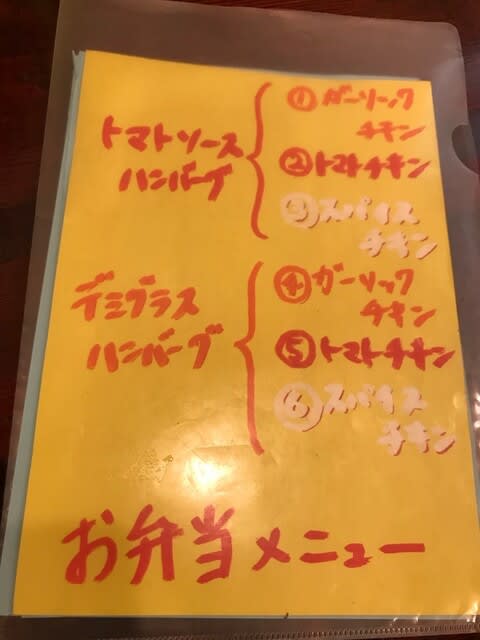 トマトソース
ハンバーグ
①ガーリック
チキン
②トマトチキン
③スパイス
チキン
デミグラス
ハンバーグ
④ガーリック
チキン
⑤トマトチキン
⑥スパイス
チキン
お弁当メニュー